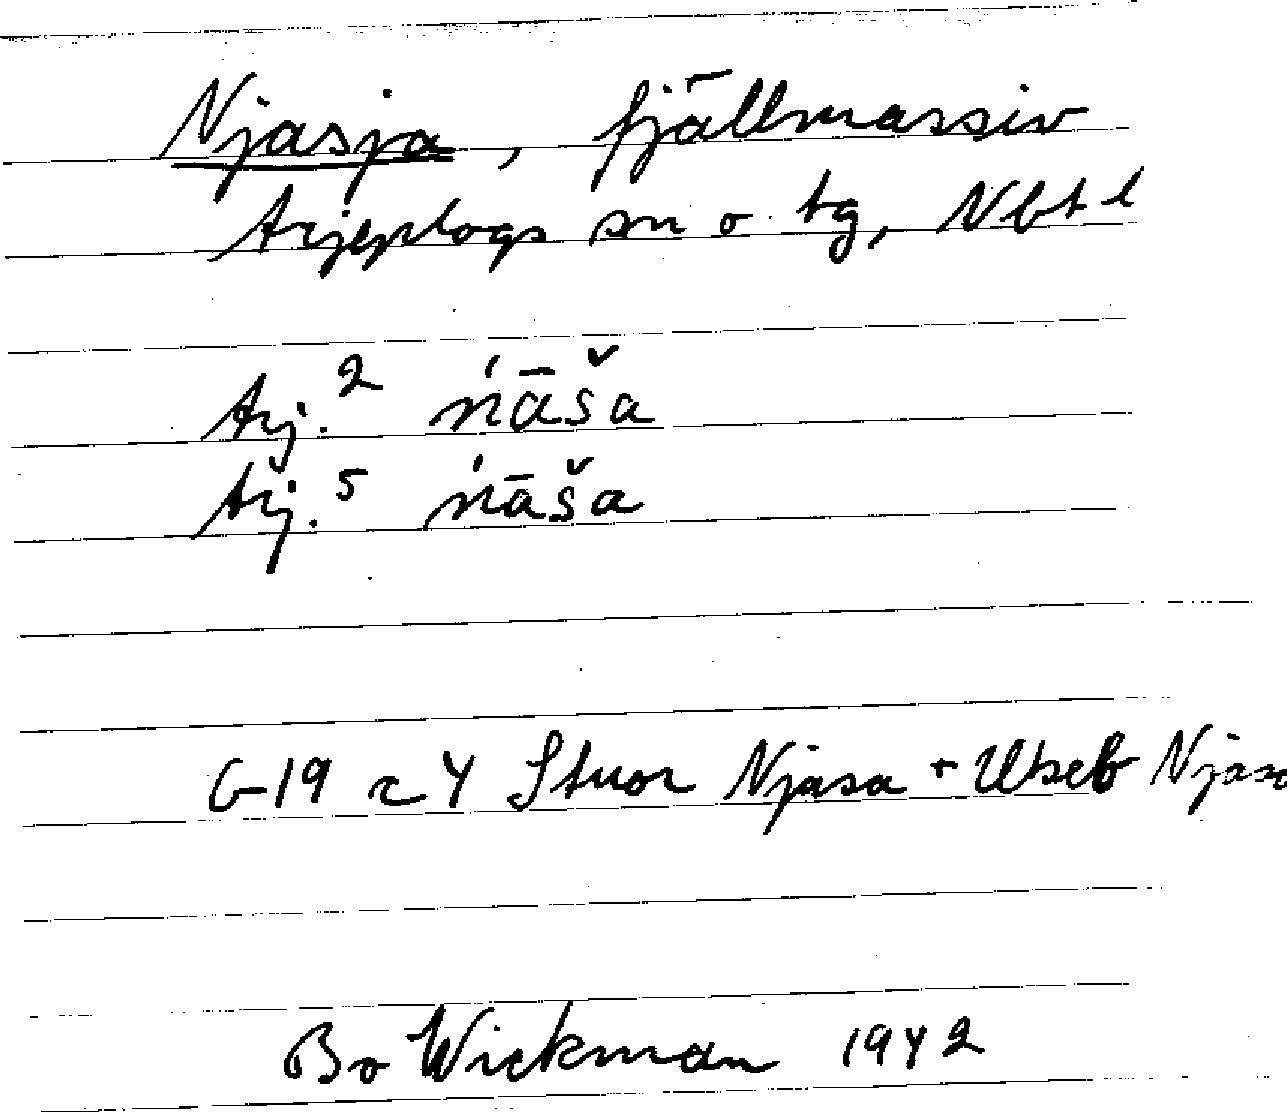 Njasja, fjällmassiv
Arjeplogs sn o tg, Nbt l
Arj.² ńāša
Arj.⁵ ńāša
G-19 c 4 Stuor Njasa + Utseb Njasa
Bo Wickman 1942